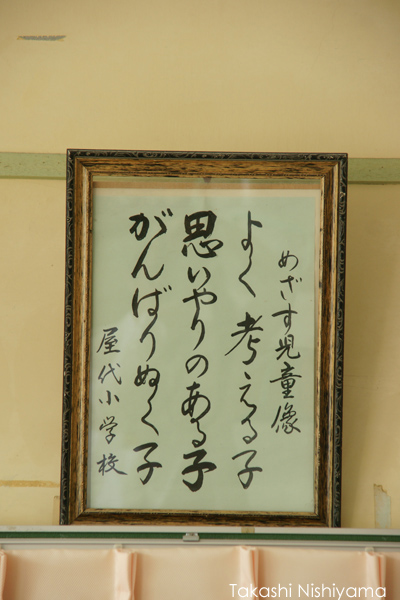 めざす児童像
よく考える子
思いやりのある子
がんばりぬく子
屋代小学校
Takashi Nishiyama